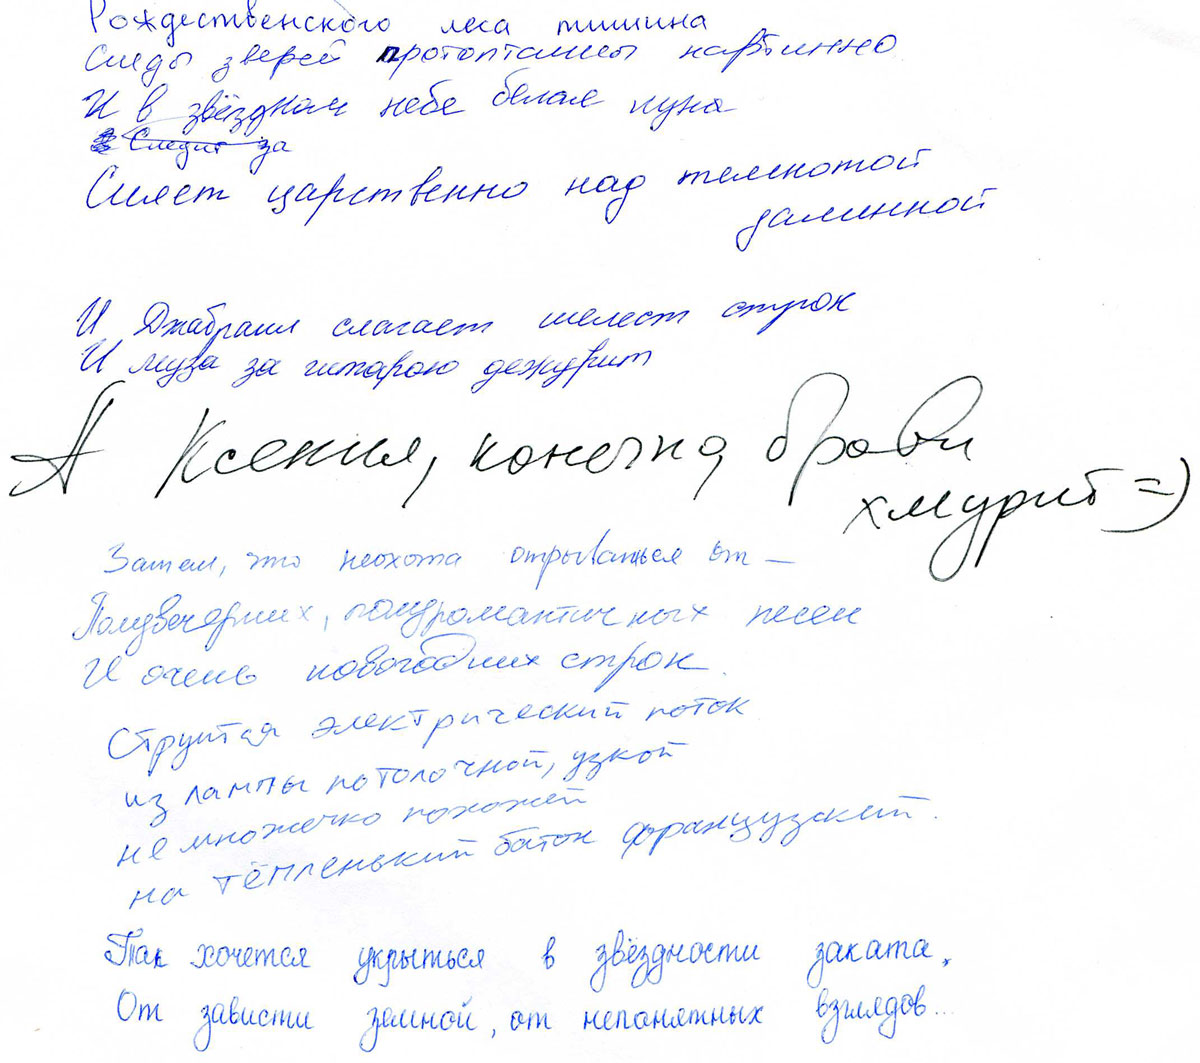 Рождественского леса тишина
Следы зверей протоптаны картинно
И в звёздном небе белая луна
Следит за
Сияет царственно над темнотой
далинной
И Джабраил слагает шелест строк
И муза за гитарою дежурит
А Ксения, конечно, брови
хмурит =)
Затем, что неохота отрываться от —
Полувечерних, полуромантичных песен
И очень новогодних строк.
Струится электрический поток
из лампы потолочной, узкой
немножечко похожей
на тёпленький батон французский.
Так хочется укрыться в звёздности заката,
От зависти земной, от непонятных взглядов...